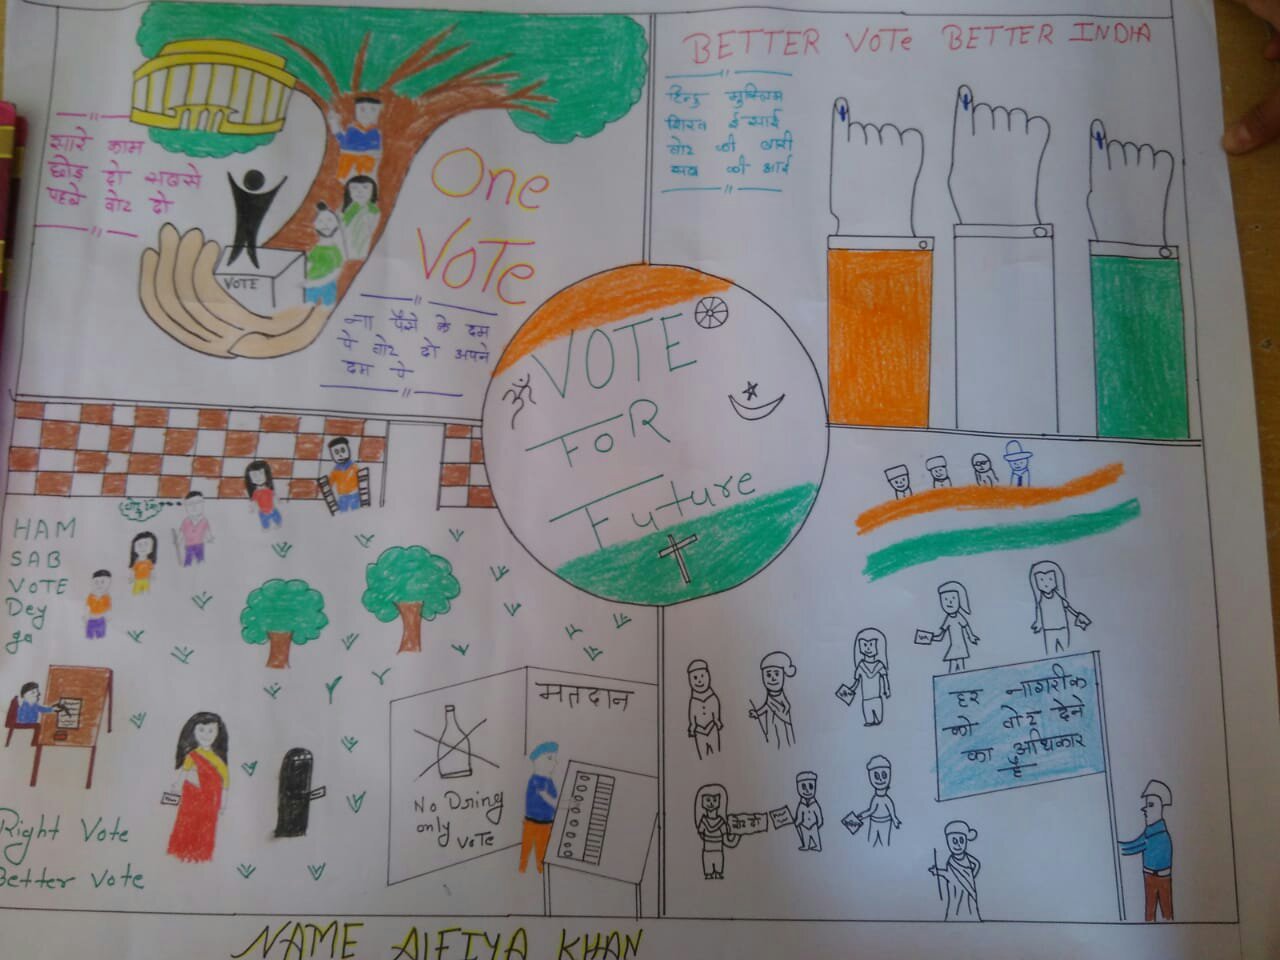 सारे काम
छोड़ दो सबसे
पहले वोट दो
One
VOTe
VOTE
ना पैसे के दम
पे वोट दो अपने
दम पे
BETTER VOTe BETTER INDIA
हिन्दु मुस्लिम
सिख ईसाई
वोट की बारी
सब की आई
VOTE
FoR
Future
ॐ
HAM
SAB
VOTE
Dey
ga
Right Vote
Better Vote
मतदान
No Dring
only
VoTe
हर नागरीक
को वोट देने
का अधिकार
है
NAME AlFIYA KHAN